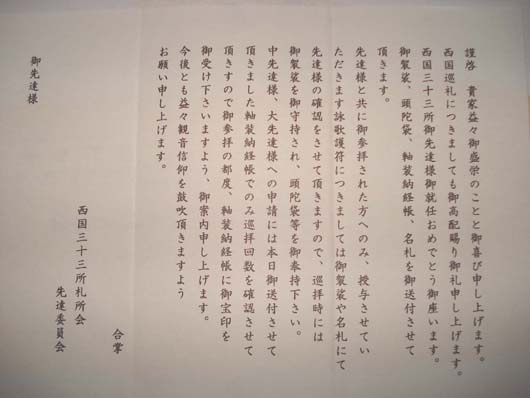 謹啓　貴家益々御盛栄のことと御喜び申し上げます。
西国巡礼につきましても御高配賜り御礼申し上げます。
西国三十三所御先達様御就任おめでとう御座います。
御袈裟、頭陀袋、軸装納経帳、名札を御送付させて
頂きます。
先達様と共に御参拝された方へのみ、授与させてい
ただきます詠歌護符につきましては御袈裟や名札にて
先達様の確認をさせて頂きますので、巡拝時には
御袈裟を御守持され、頭陀袋等を御奉持下さい。
中先達様、大先達様への申請には本日御送付させて
頂きました軸装納経帳でのみ巡拝回数を確認させて
頂きますので御参拝の都度、軸装納経帳に御宝印を
御受け下さいますよう、御案内申し上げます。
今後とも益々観音信仰を鼓吹頂きますよう
お願い申し上げます。
合掌
西国三十三所札所会
先達委員会
御先達様